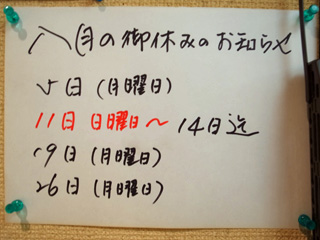 八月の御休みのお知らせ
5日(月曜日)
11日 日曜日〜14日迄
19日(月曜日)
26日(月曜日)